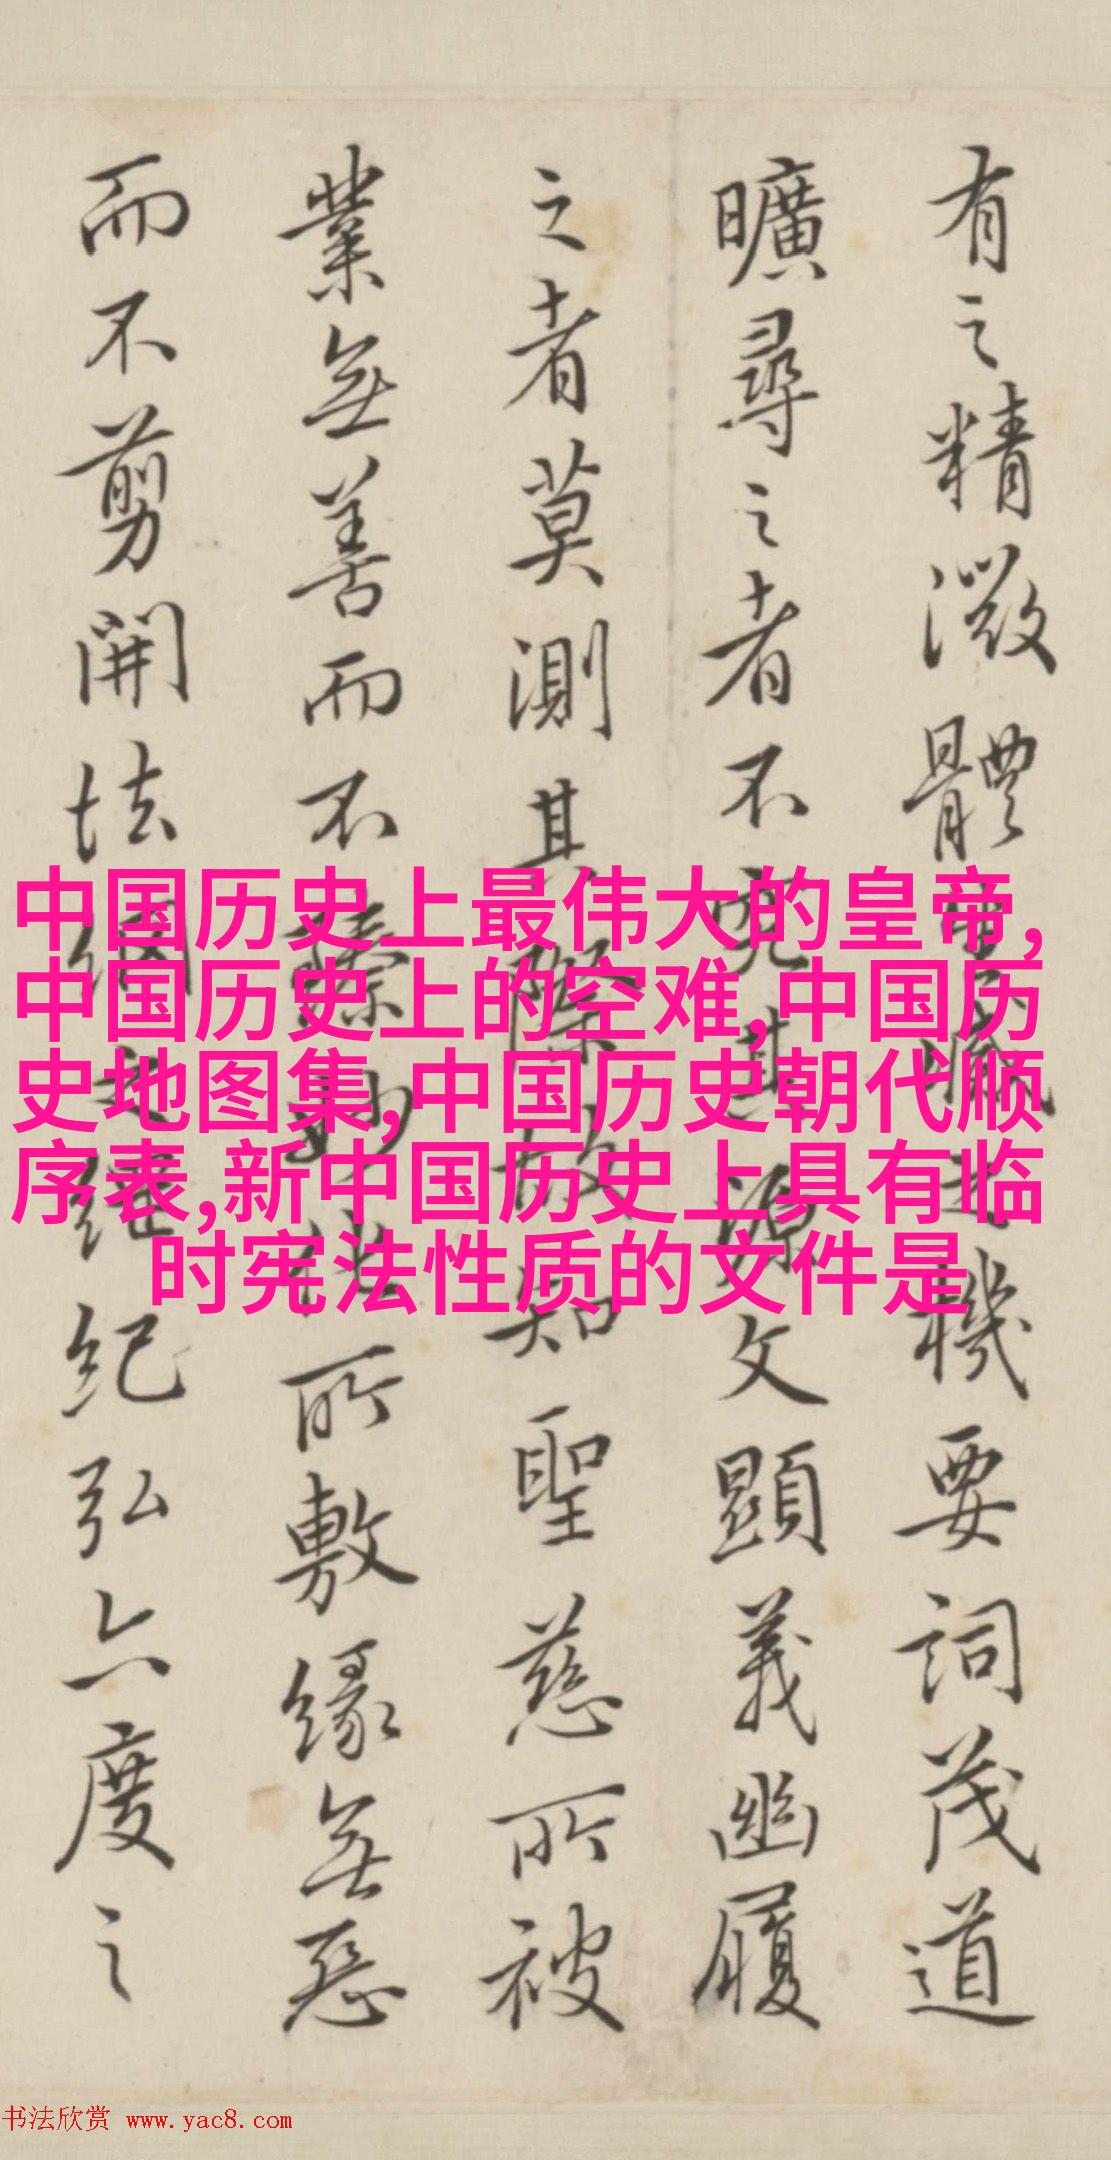 有之精微體滅之機要詞茂道
曠尋之者不究其源文顯義幽履
之者莫測其際故知聖慈所被
業無善而不臻妙化所敷緣無惡
而不剪開法網之綱紀弘六度之
中国历史上最伟大的皇帝,
中国历史上的空难,中国历
史地图集,中国历史朝代顺
序表,新中国历史上具有临
时宪法性质的文件是
书法欣赏 www.yac8.com